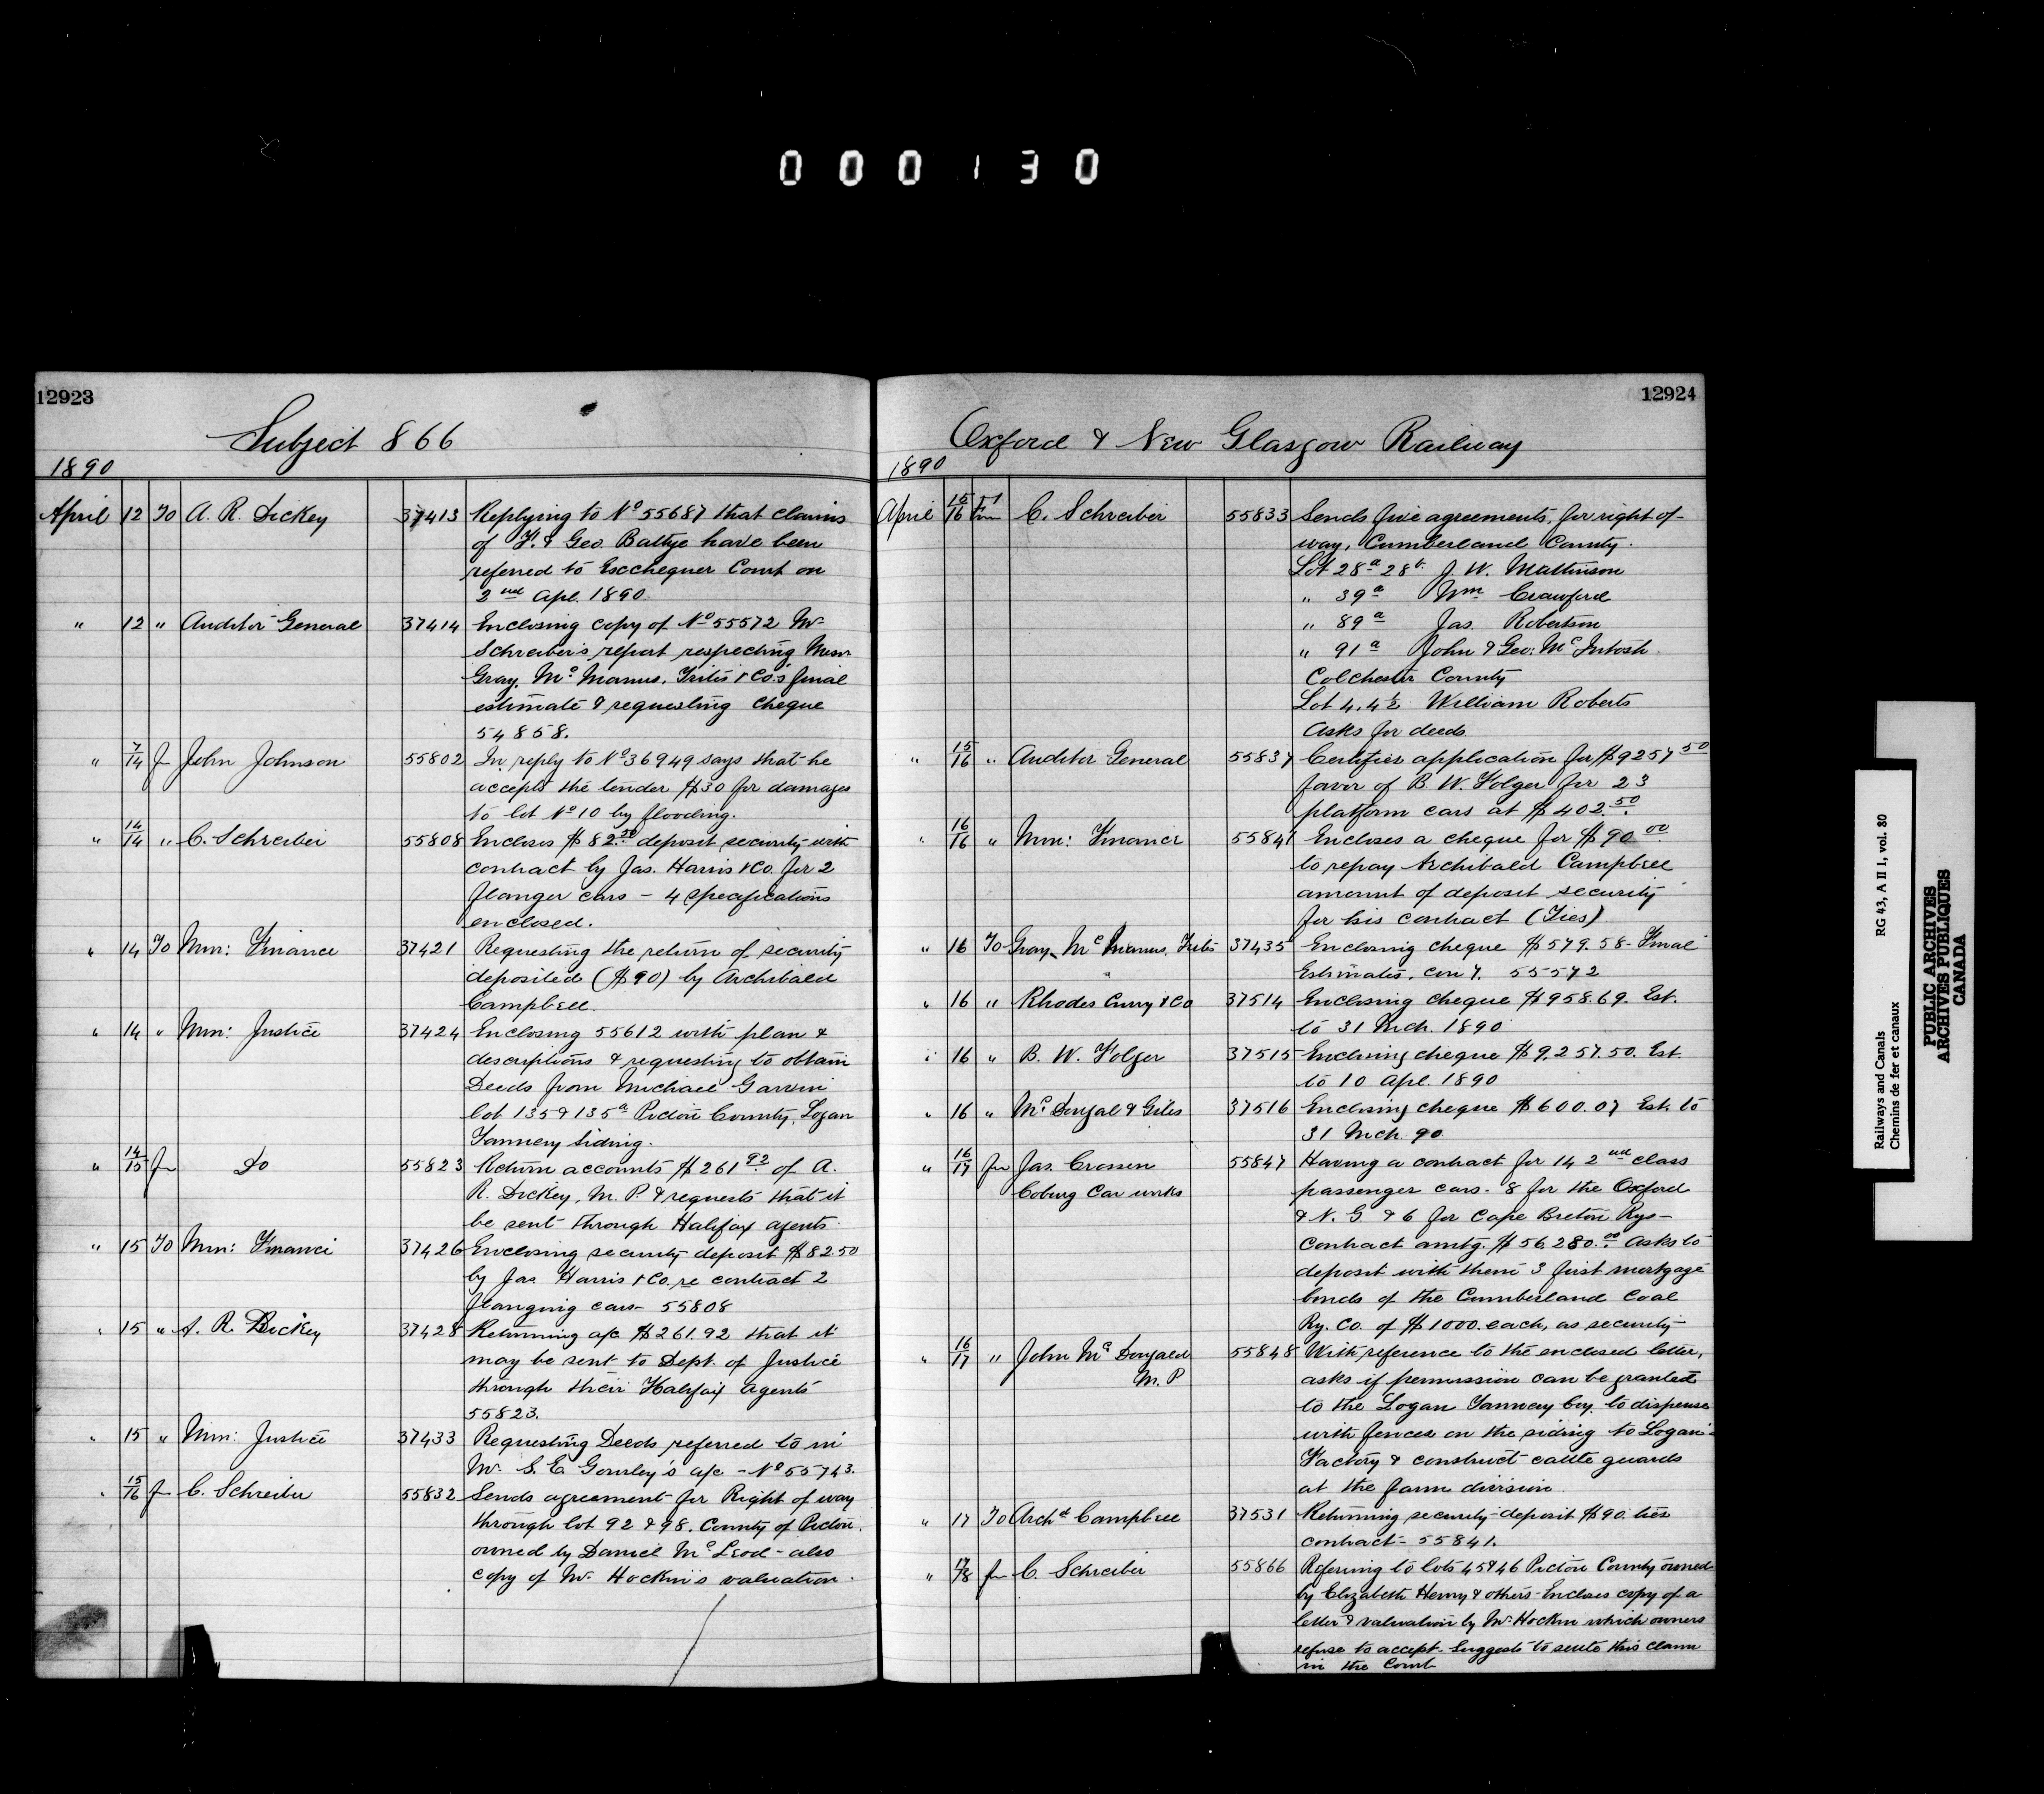 000130
12923
Subject 866
1890
April 12 To A. R. Dickey 37413 Replying to No 55687 that claims
of F. & Geo. Battye have been
referred to Excchequer Court on
2nd Apl. 1890.
" 12 " Auditor General 37414 Enclosing copy of No 55572 Mr
Schreiber's report respecting Messr
Gray, McManus, Fritis & Co.'s final
estimate & requesting cheque
54858.
" 7/14 fm John Johnson 55802 In reply to No 36949 says that he
accepts the tender $30 for damages
to lot No 10 by flooding.
" 14/14 " C. Schreiber 55808 Encloses $82.50 deposit security with
contract by Jas. Harris & Co. for 2
flanger cars - 4 specifications
enclosed.
" 14 To Min: Finance 37421 Requesting the return of security
deposited ($90) by Archibald
Campbell.
" 14 " Min: Justice 37424 Enclosing 55612 with plan &
descriptions & requesting to obtain
Deeds from Michael Garvin
lot 135 & 135a Pictou County, Logan
Tannery Siding.
" 14/15 fm Do 55823 Return accounts $261.92 of A.
R. Dickey, M. P. & requests that it
be sent through Halifax agents.
" 15 To Min: Finance 37426 Enclosing security deposit $82.50
by Jas. Harris & Co. re contract 2
flanging cars - 55808
" 15 " A. R. Dickey 37428 Returning a/c $261.92 that it
may be sent to Dept. of Justice
through their Halifax agents
55823.
" 15 " Min: Justice 37433 Requesting Deeds referred to in
Mr. S. E. Gourley's a/c - No 55743.
" 15/16 fm C. Schreiber 55832 Sends agreement for Right of way
through lot 92 & 98. County of Pictou.
owned by Daniel McLeod - also
copy of Mr. Hockin's valuation.
12924
Oxford & New Glasgow Railway
1890
April 15/16 Fm C. Schreiber 55833 Sends five agreements, for right of-
way, Cumberland County.
Lot 28a 28b J. W. Mattinson
" 39a Wm Crawford
" 89a Jas. Robertson
" 91a John & Geo: McIntosh.
Colchester County
Lot 4. 4½ William Roberts
Asks for deeds.
" 15/16 " Auditor General 55837 Certifies application for $9257.50
favor of B. W. Folger for 23
platform cars at $402.50.
" 16/16 " Min: Finance 55841 Encloses a cheque for $90.00
to repay Archibald Campbell
amount of deposit security
for his contract (Ties)
" 16 To Gray, McManus, Fritis 37435 Enclosing cheque $579.58 - Final
Estimates, con 7. 55572
" 16 " Rhodes Curry & Co 37514 Enclosing cheque $958.69. Est.
to 31 Mch. 1890.
" 16 " B. W. Folger 37515 Enclosing cheque $9.257.50. Est.
to 10 Apl. 1890
" 16 " McDougal & Giles 37516 Enclosing cheque $600.07 Est. to
31 Mch. 90.
" 16/17 fm Jas. Crossen 55847 Having a contract for 14 2nd class
Coburg Car works passenger cars - 8 for the Oxford
& N. G & 6 for Cape Breton Rys -
contract amtg. $56,280.00 Asks to
deposit with them 3 first mortgage
bonds of the Cumberland Coal
Ry. Co. of $1000. each, as security -
" 16/17 " John McDougald 55848 With reference to the enclosed letter,
M. P asks if permission can be granted
to the Logan Tannery Coy. to dispense
with fences on the siding to Logan's
Factory & construct cattle guards
at the farm division.
" 17 To Archd Campbell 37531 Returning security deposit $90. ties
contract - 55841.
" 17/18 fm C. Schreiber 55866 Refering to lots 45 & 46 Pictou County owned
by Elizabeth Henry & others - Encloses copy of a
letter & valuation by Mr. Hockin which owners
refuse to accept. Suggests to settle this claim
in the Court
Railways and Canals RG 43, A II 1, vol. 80
Chemins de fer et canaux
PUBLIC ARCHIVES
ARCHIVES PUBLIQUES
CANADA